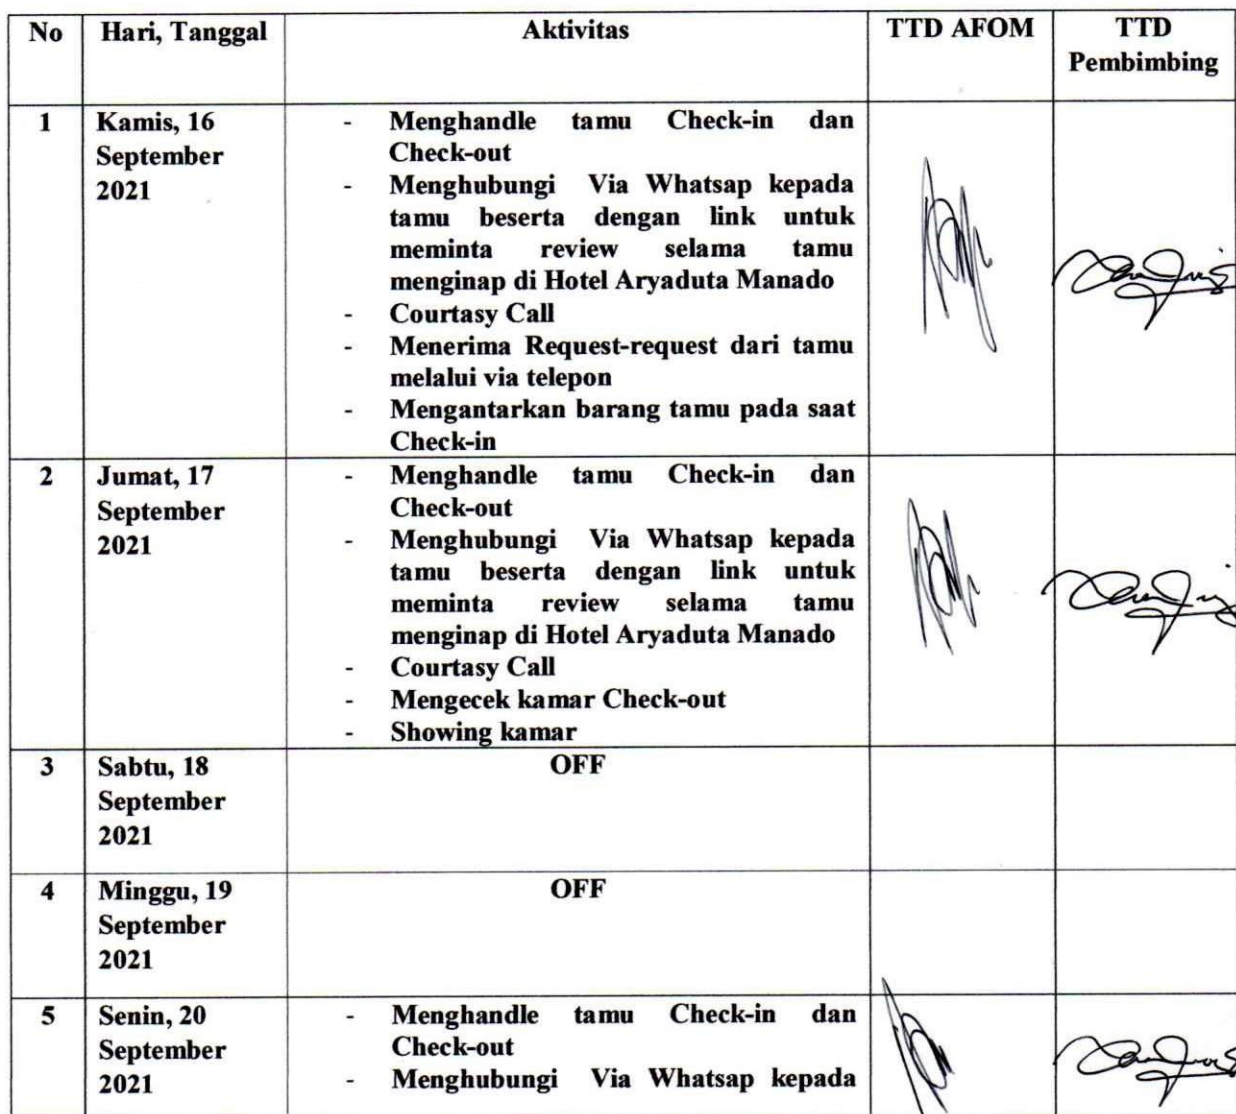 No Hari, Tanggal Aktivitas TTD AFOM TTD
Pembimbing
1 Kamis, 16
September
2021
- Menghandle tamu Check-in dan
Check-out
- Menghubungi Via Whatsap kepada
tamu beserta dengan link untuk
meminta review selama tamu
menginap di Hotel Aryaduta Manado
- Courtasy Call
- Menerima Request-request dari tamu
melalui via telepon
- Mengantarkan barang tamu pada saat
Check-in
2 Jumat, 17
September
2021
- Menghandle tamu Check-in dan
Check-out
- Menghubungi Via Whatsap kepada
tamu beserta dengan link untuk
meminta review selama tamu
menginap di Hotel Aryaduta Manado
- Courtasy Call
- Mengecek kamar Check-out
- Showing kamar
3 Sabtu, 18
September
2021
OFF
4 Minggu, 19
September
2021
OFF
5 Senin, 20
September
2021
- Menghandle tamu Check-in dan
Check-out
- Menghubungi Via Whatsap kepada